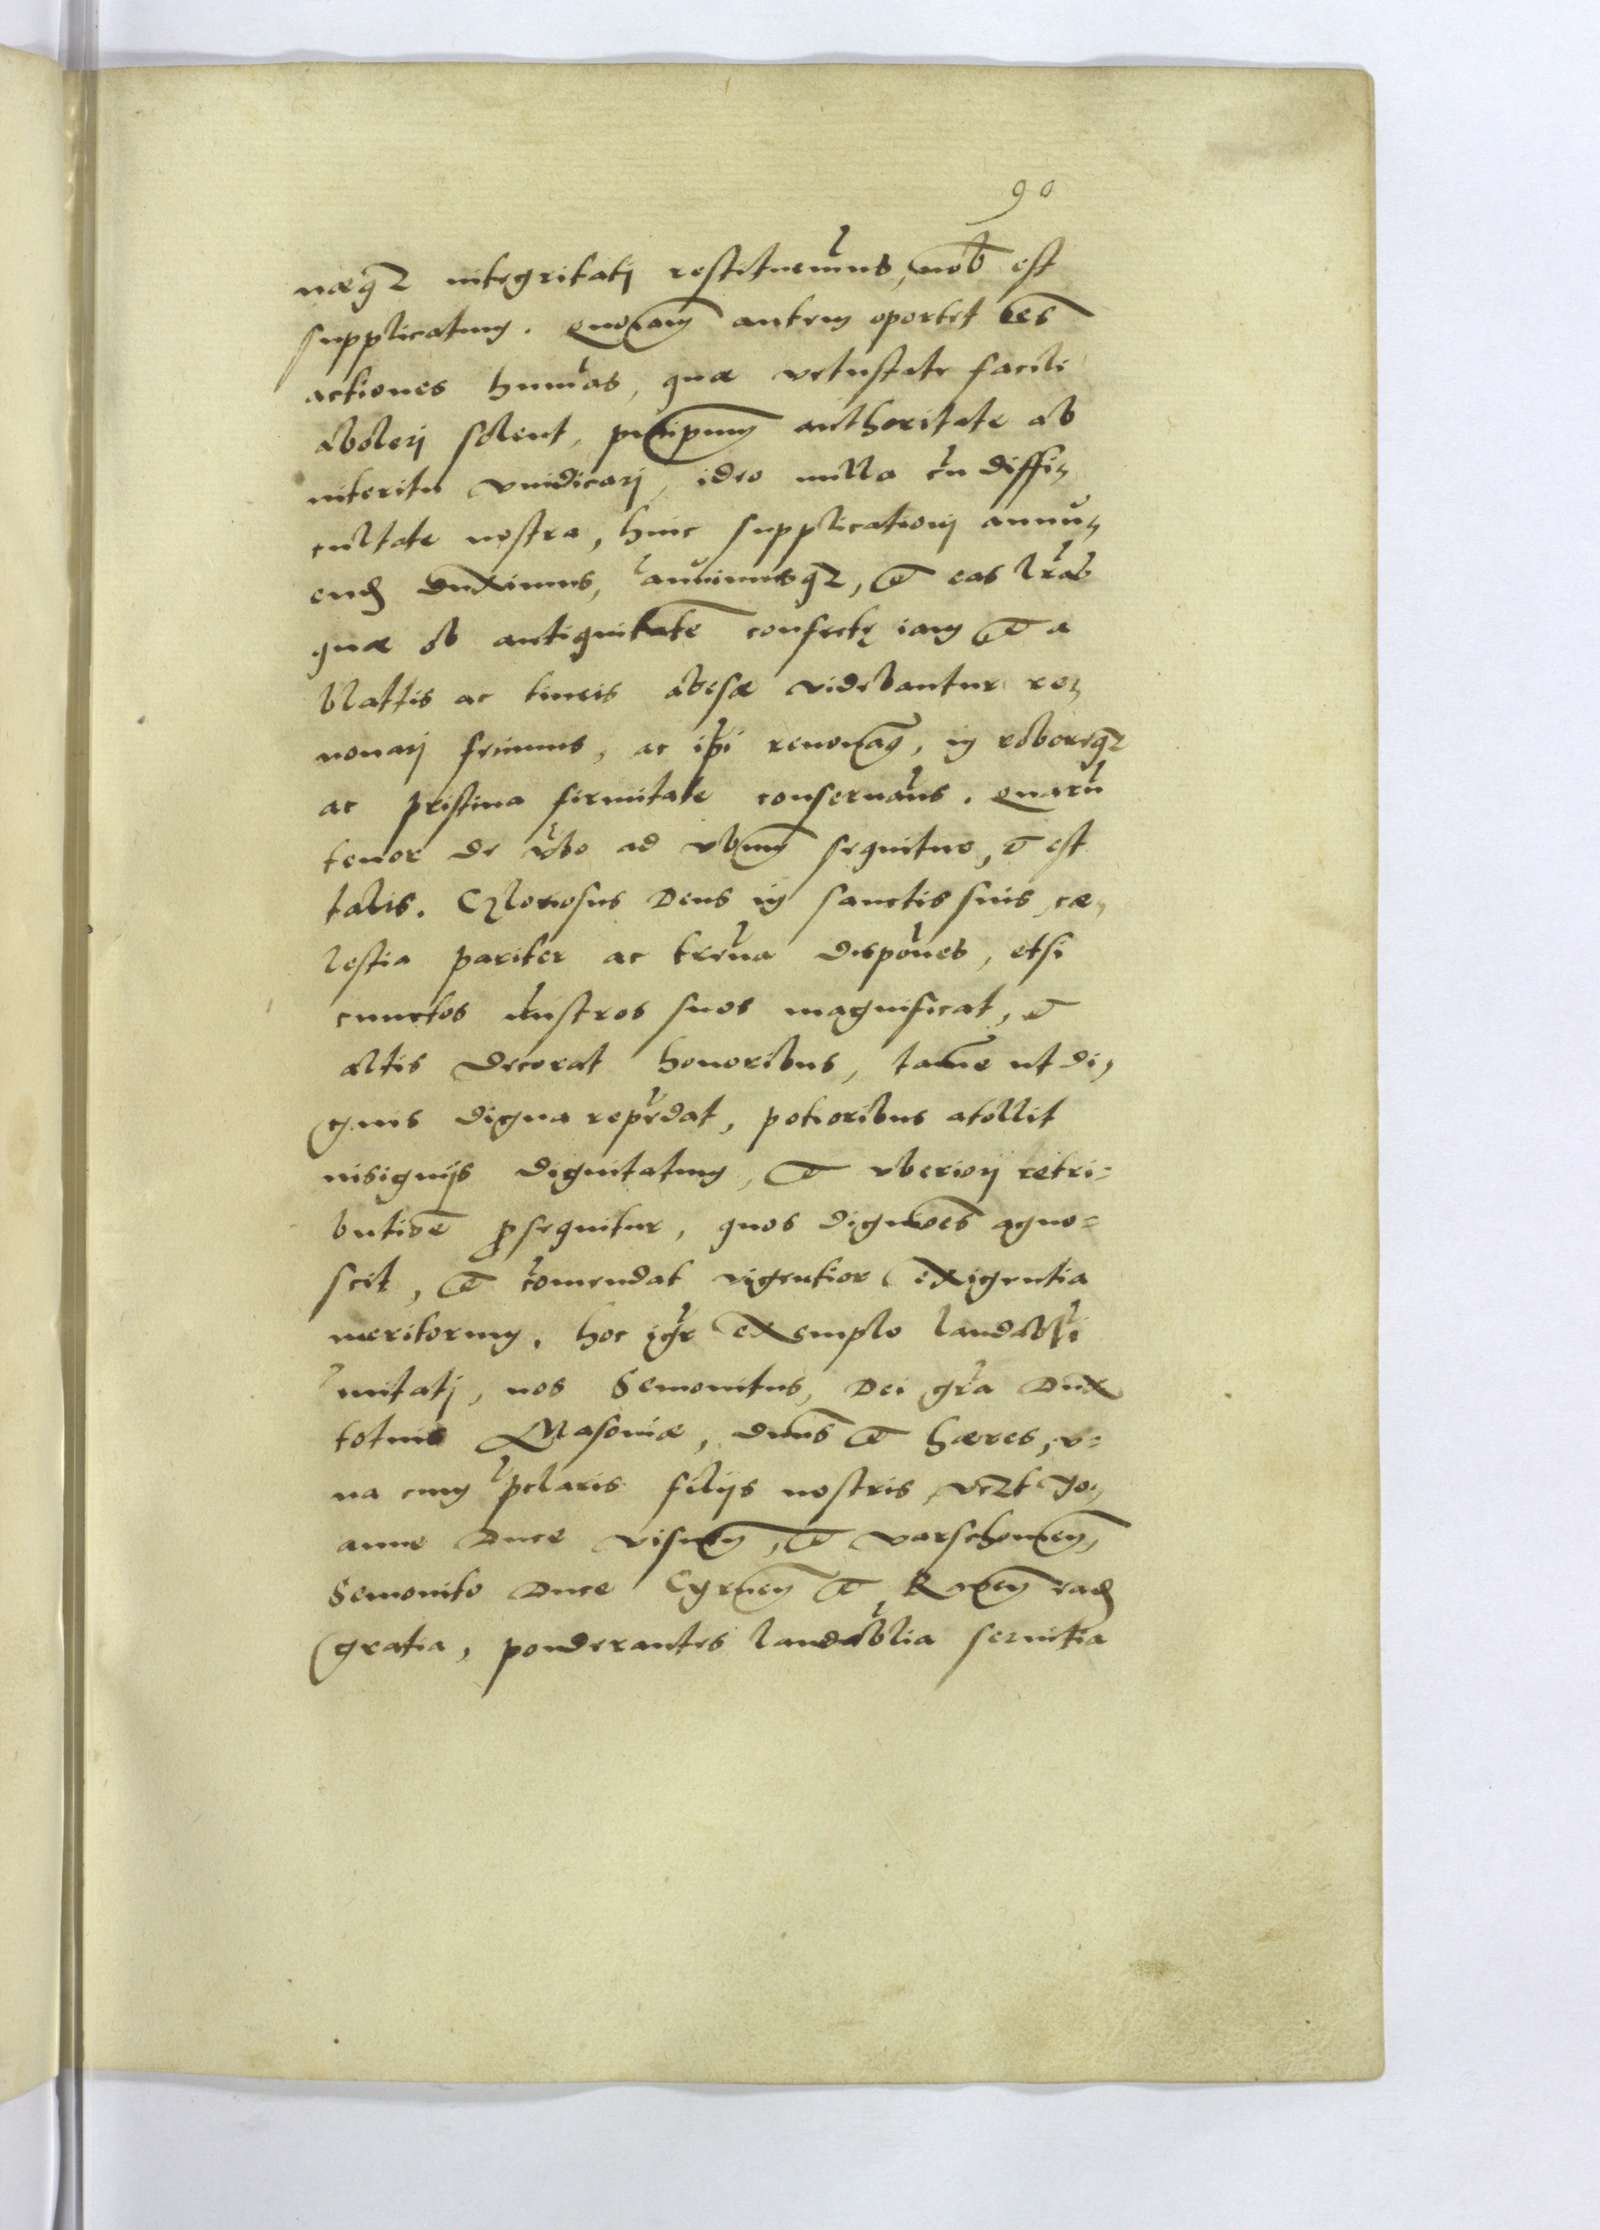 90
næq3 integritatj restitueremus, nob est
supplicatum. Quoniam autem oportet oes
actiones humãs, quæ vetustate facili
abolerj solent, principum authoritate ab
interitu vindicarj, ideo nulla cũ diffi-
cultate nostra, huic supplicationj annu-
end duximus, annuimusq3, et eas lras
quæ ob antiquitatẽ confectę iam et a
blattis ac tineis abesæ videbantur re-
nouarj fecimus, ac ipi renouam, in roboreq3
ac pristina firmitate conseruams. Quarũ
tenor de vbo ad vbum sequitur, et est
talis. Gloriosus Deus in sanctis suis, cæ-
lestia pariter ac terrena disponẽs, etsi
cunctos mĩstros suos magnificat, et
altis decorat honoribus, tamẽ ut di-
gnis digna repẽdat, potioribus atollit
insignijs dignitatum, et vberiorj retri-
butiõe prosequitur, quos digniores agno-
scit, et cõmendat vigentior exigentia
meritorum. Hoc igr exemplo laudabi
mitatj, nos Semouitus, Dei gra Dux
totius Masouiæ, dnus et hæres, v-
na cum pclaris filijs nostris, vczt Jo-
anne Duce Visnem, et Varschouien,
Semouito Duce Cyrnen et Rauen ead
gratia, ponderantes laudabilia seruitia